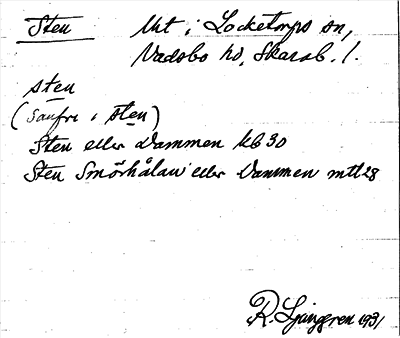 Sten Urt i Locketorps sn,
Vadsbo hd, Skarab. l.
sten
(saufr i sten)
Sten eller Dammen kb 30
Sten Smörhålan eller Dammen mtl 28
R. Ljunggren 1931